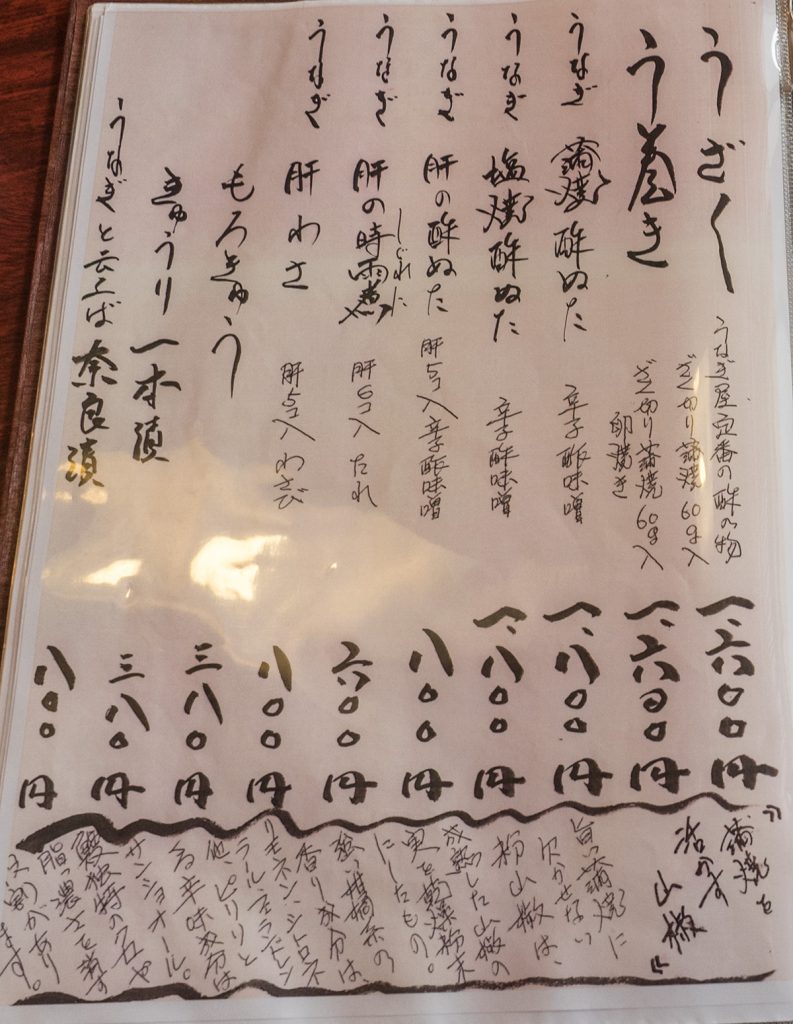 うざく
うなぎ屋定番の酢の物
ざく切り蒲焼60g入
一、六〇〇円
う巻き
ざく切り蒲焼60g入
卵焼き
一、六〇〇円
うなぎ 蒲焼酢ぬた
辛子酢味噌
一、八〇〇円
うなぎ 塩焼酢ぬた
辛子酢味噌
一、八〇〇円
うなぎ 肝の酢ぬた
肝5コ入辛子酢味噌
八〇〇円
うなぎ 肝の時雨煮
しぐれに
肝6コ入 たれ
六〇〇円
うなぎ 肝わさ
肝5コ入 わさび
八〇〇円
もろきゅう
三八〇円
きゅうり一本漬
三八〇円
うなぎと云えば奈良漬
八〇〇円
『蒲焼を
活かす
山椒』
旨い蒲焼に
欠かせない
粉山椒は、
成熟した山椒の
実を乾燥粉末
にしたもの。
強い柑橘系の
香り成分は、
リモネン・シトロネ
ラール・フェランドレン
他、ピリリと
する辛味成分は
サンショオール。
鰻独特の匂や
脂っ濃さを消す
役割があり
ます。